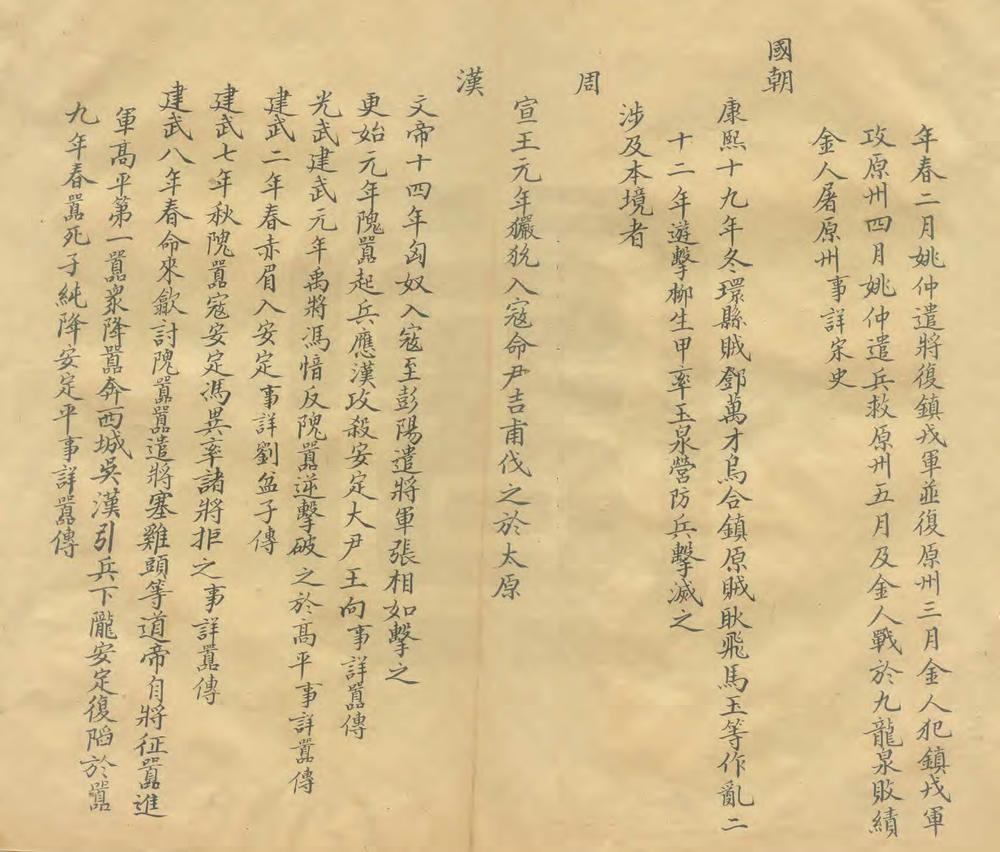 年春二月姚仲遣將復鎮戎軍並復原州三月金人犯鎮戎軍
攻原州四月姚仲遣兵救原州五月及金人戰於九龍泉敗績
金人屠原州事詳宋史
國朝
康熙十九年冬環縣賊鄧萬才烏合鎮原賊耿飛馬玉等作亂二
十二年遊擊柳生甲率玉泉營防兵擊滅之
涉及本境者
周
宣王元年玁狁入寇命尹吉甫伐之於太原
漢
文帝十四年匈奴入寇至彭陽遣將軍張相如擊之
更始元年隗囂起兵應漢攻殺安定大尹王向事詳囂傳
光武建武元年禹將馮愔反隗囂逆擊破之於高平事詳囂傳
建武二年春赤眉入安定事詳劉盆子傳
建武七年秋隗囂寇安定馮異率諸將拒之事詳囂傳
建武八年春命來歙討隗囂囂遣將塞雞頭等道帝自將征囂進
軍高平第一囂衆降囂奔西城吳漢引兵下隴安定復陷於囂
九年春囂死子純降安定平事詳囂傳